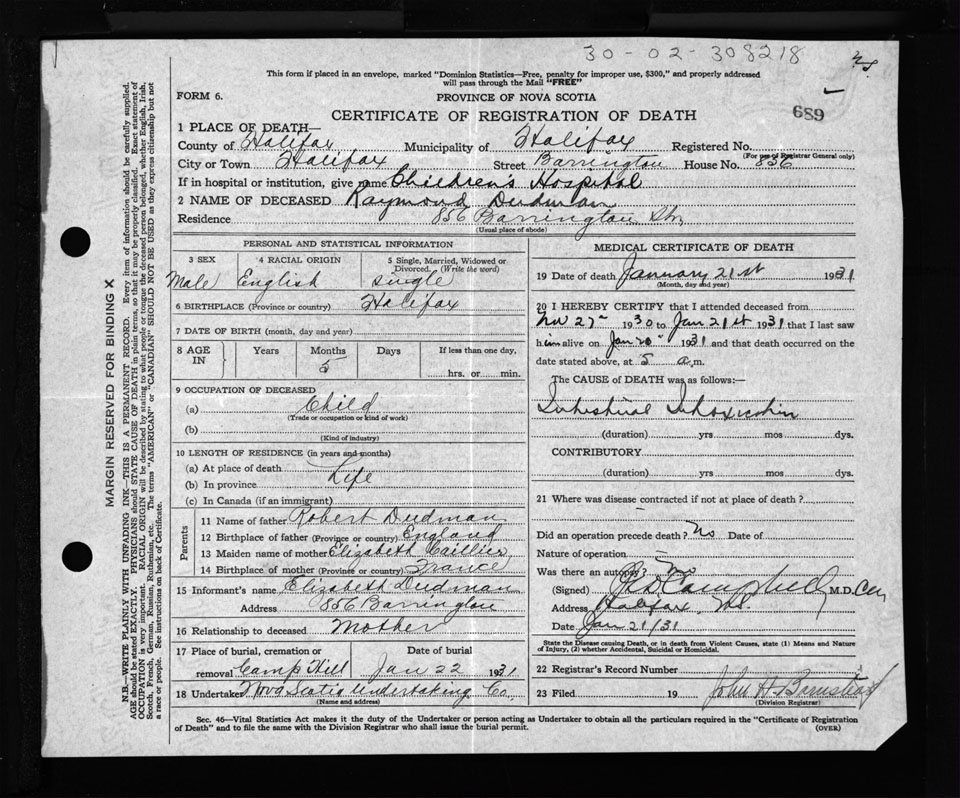 30-02-308218
This form if placed in an envelope, marked "Dominion Statistics—Free, penalty for improper use, $300," and properly addressed
will pass through the Mail "FREE"
FORM 6.
PROVINCE OF NOVA SCOTIA
689
CERTIFICATE OF REGISTRATION OF DEATH
1 PLACE OF DEATH—
County of Halifax Municipality of Halifax Registered No.
(For use of Registrar General only)
City or Town Halifax Street Barrington House No. 856
If in hospital or institution, give name Children's Hospital
2 NAME OF DECEASED Raymond Dudman
Residence 856 Barrington
(Usual place of abode)
PERSONAL AND STATISTICAL INFORMATION
3 SEX 4 RACIAL ORIGIN 5 Single, Married, Widowed or
Divorced. (Write the word)
Male English Single
6 BIRTHPLACE (Province or country) Halifax
7 DATE OF BIRTH (month, day and year)
8 AGE IN Years Months Days If less than one day,
5
hrs. or min.
9 OCCUPATION OF DECEASED
(a) Child
(Trade or occupation or kind of work)
(b)
(Kind of industry)
10 LENGTH OF RESIDENCE (in years and months)
(a) At place of death
(b) In province Life
(c) In Canada (if an immigrant)
Parents
11 Name of father Robert Dudman
12 Birthplace of father (Province or country) England
13 Maiden name of mother Elizabeth Caillier
14 Birthplace of mother (Province or country) France
15 Informant's name Elizabeth Dudman
Address 856 Barrington
16 Relationship to deceased Mother
17 Place of burial, cremation or Date of burial
removal Camp Hill Jan 22 1931
18 Undertaker Nova Scotia Undertaking Co.
(Name and address)
MEDICAL CERTIFICATE OF DEATH
19 Date of death January 21st 1931
(Month, day and year)
20 I HEREBY CERTIFY that I attended deceased from
Nov 27 1930 to Jan 21st 1931 that I last saw
him alive on Jan 20 1931 and that death occurred on the
date stated above, at 5 a.m.
The CAUSE of DEATH was as follows:—
Intestinal Intoxication
(duration) yrs mos dys.
CONTRIBUTORY
(duration) yrs mos dys.
21 Where was disease contracted if not at place of death?
Did an operation precede death? No Date of
Nature of operation
Was there an autopsy? No
(Signed) Campbell M.D.
Address Halifax, N.S.
Date Jan 21/31
State the Disease causing Death, or in death from Violent Causes, state (1) Means and Nature
of Injury, (2) whether Accidental, Suicidal or Homicidal.
22 Registrar's Record Number
23 Filed 19 John H. Barnstead
(Division Registrar)
Sec. 46—Vital Statistics Act makes it the duty of the Undertaker or person acting as Undertaker to obtain all the particulars required in the "Certificate of Registration
of Death" and to file the same with the Division Registrar who shall issue the burial permit.
(OVER)
MARGIN RESERVED FOR BINDING X
N.B.—WRITE PLAINLY WITH UNFADING INK—THIS IS A PERMANENT RECORD. Every item of information should be carefully supplied.
AGE should be stated EXACTLY. PHYSICIANS should STATE CAUSE OF DEATH in plain terms, so that it may be properly classified. Exact statement of
OCCUPATION is very important. RACIAL ORIGIN will be described by stating to what people or tongue the deceased person belonged, whether English, Irish,
Scotch, French, German, Russian, Ruthenian, etc. The terms "AMERICAN" or "CANADIAN" SHOULD NOT BE USED as they express citizenship but not
a race or people. See instructions on back of Certificate.